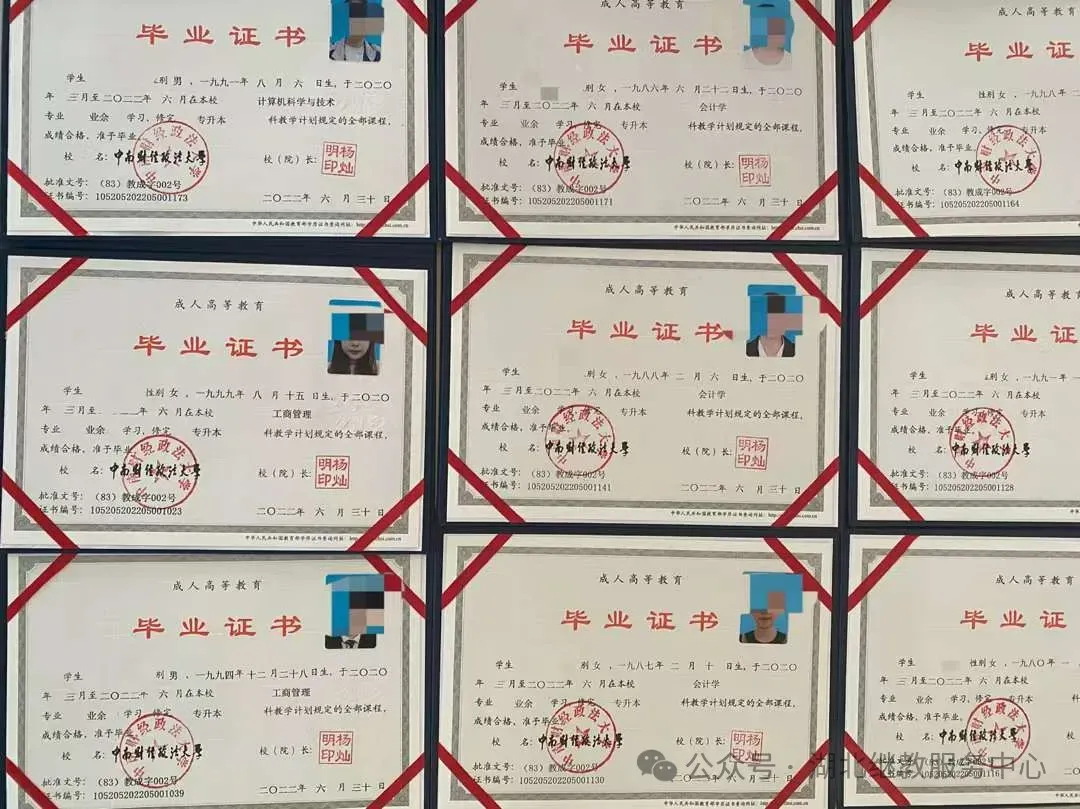 毕业证书
学生 别 男 ，一九九一年 八 月 六 日生，于二〇二〇
年 三月至二〇二二年 六 月在本校 计算机科学与技术
专业 业余 学习，修完 专升本 科教学计划规定的全部课程，
成绩合格，准予毕业。
校 名：中南财经政法大学 校（院）长：
杨灿明印
批准文号：（83）教成字002号
证书编号：105205202205001173 二〇二二年 六 月 三十 日
中华人民共和国教育部学历证书查询网址：
成人高等教育
毕业证书
学生 别 女 ，一九八六年 六 月 二十二日生，于二〇二〇
年 三月至二〇二二年 六 月在本校 会计学
专业 业余 学习，修完 专升本 科教学计划规定的全部课程，
成绩合格，准予毕业。
校 名：中南财经政法大学 校（院）长：
杨灿明印
批准文号：（83）教成字002号
证书编号：105205202205001171 二〇二二年 六 月 三十 日
中华人民共和国教育部学历证书查询网址：
成人高等教育
毕业证
学生 性别 女 ，一九九八年
年 三月至二〇二二年 六 月在本校
专业 业余 学习，修完 专升本
成绩合格，准予毕业。
校 名：中南财经政法大学
批准文号：（83）教成字002号
证书编号：105205202205001164
成人高等教育
毕业证书
学生 性别 女 ，一九九九年 八 月 十五 日生，于二〇二〇
年 三月至 年 六 月在本校 工商管理
专业 业余 学习，修完 专升本 科教学计划规定的全部课程，
成绩合格，准予毕业。
校 名：中南财经政法大学 校（院）长：
杨灿明印
批准文号：（83）教成字002号
证书编号：105205202205001023 二〇二二年 六 月 三十 日
中华人民共和国教育部学历证书查询网址：
成人高等教育
毕业证书
学生 别 女 ，一九八八年 二 月 六 日生，于二〇二〇
年 三月至二〇二二年 六 月在本校 会计学
专业 业余 学习，修完 专升本 科教学计划规定的全部课程，
成绩合格，准予毕业。
校 名：中南财经政法大学 校（院）长：
杨灿明印
批准文号：（83）教成字002号
证书编号：105205202205001141 二〇二二年 六 月 三十 日
中华人民共和国教育部学历证书查询网址：
成人高等教育
毕业证
学生 别 女 ，一九九一年
年 三月至二〇二二年 六 月在本校
专业 业余 学习，修完 专升本
成绩合格，准予毕业。
校 名：中南财经政法大学
批准文号：（83）教成字002号
证书编号：105205202205001128
成人高等教育
毕业证书
学生 别 男 ，一九九四年 十二 月 二十八 日生，于二〇二〇
年 三月至二〇二二年 六 月在本校 工商管理
专业 业余 学习，修完 专升本 科教学计划规定的全部课程，
成绩合格，准予毕业。
校 名：中南财经政法大学 校（院）长：
杨灿明印
批准文号：（83）教成字002号
证书编号：105205202205001039 二〇二二年 六 月 三十 日
成人高等教育
毕业证书
学生 别 女 ，一九八七年 二 月 十 日生，于二〇二〇
年 三月至二〇二二年 六 月在本校 会计学
专业 业余 学习，修完 专升本 科教学计划规定的全部课程，
成绩合格，准予毕业。
校 名：中南财经政法大学 校（院）长：
杨灿明印
批准文号：（83）教成字002号
证书编号：105205202205001130
成人高等教育
毕业证
学生 性别 女 ，一九八〇年
年 三月至二〇二二年 六 月在本校
专业 业余 学习，修完 专升本
成绩合格，准予毕业。
校 名：中南财经政法大学
公众号 · 湖北继教服务中心